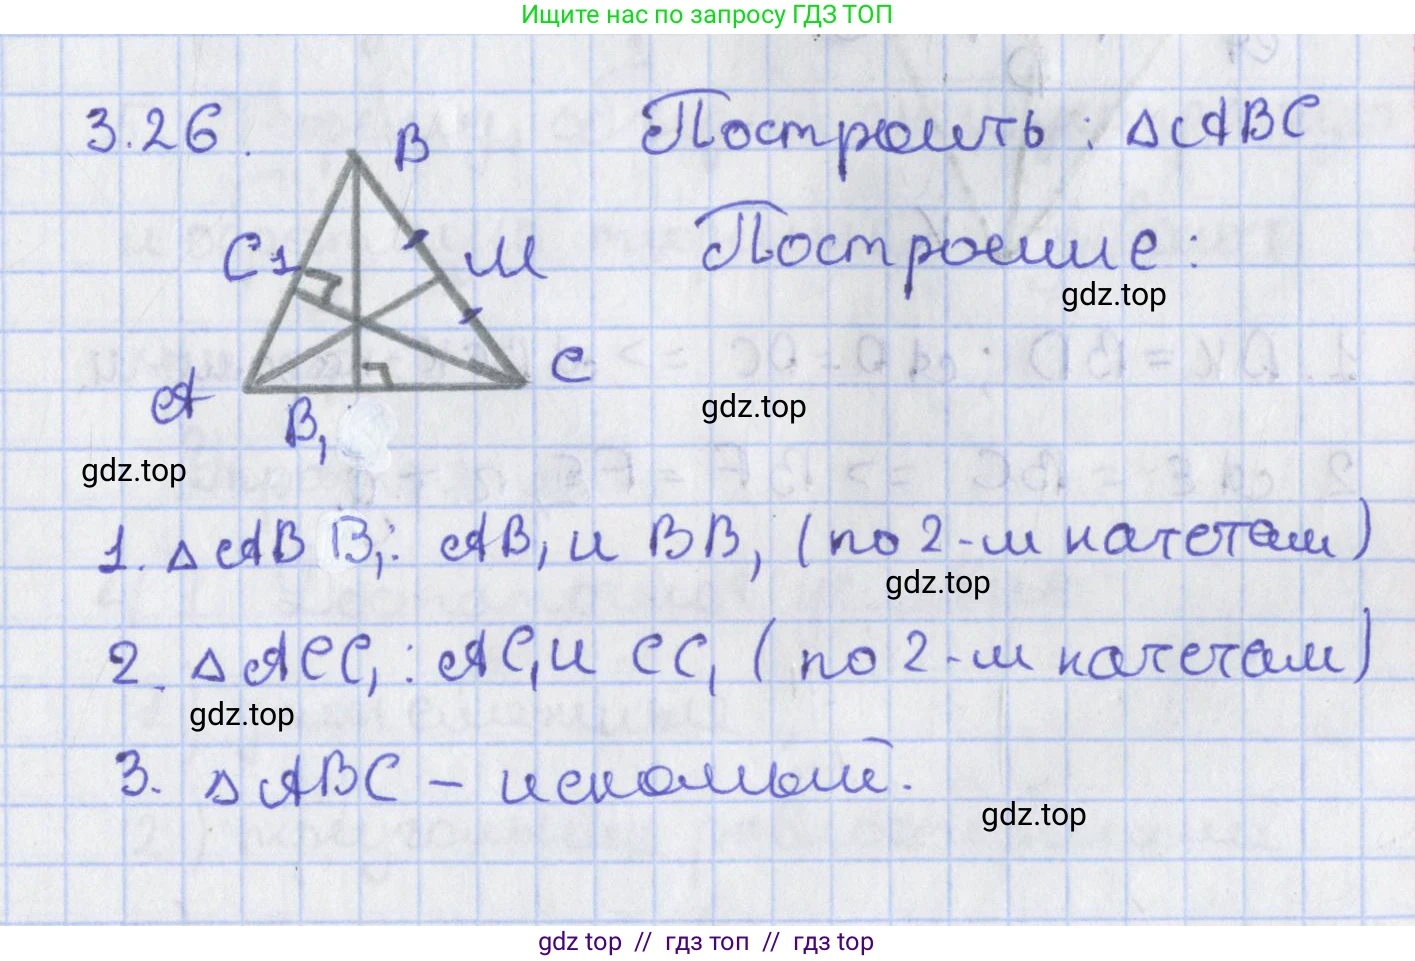 Ищите нас по запросу ГДЗ ТОП
3.26.
B
Построить: △ABC
C1
M
Построение:
gdz.top
A
C
B₁
gdz.top
gdz.top
1. △ABB₁: AB₁ и BB₁ (по 2-м катетам)
gdz.top
2. △ACC₁: AC₁ и CC₁ (по 2-м катетам)
gdz.top
3. △ABC – искомый.
gdz.top
gdz top // гдз топ // гдз top